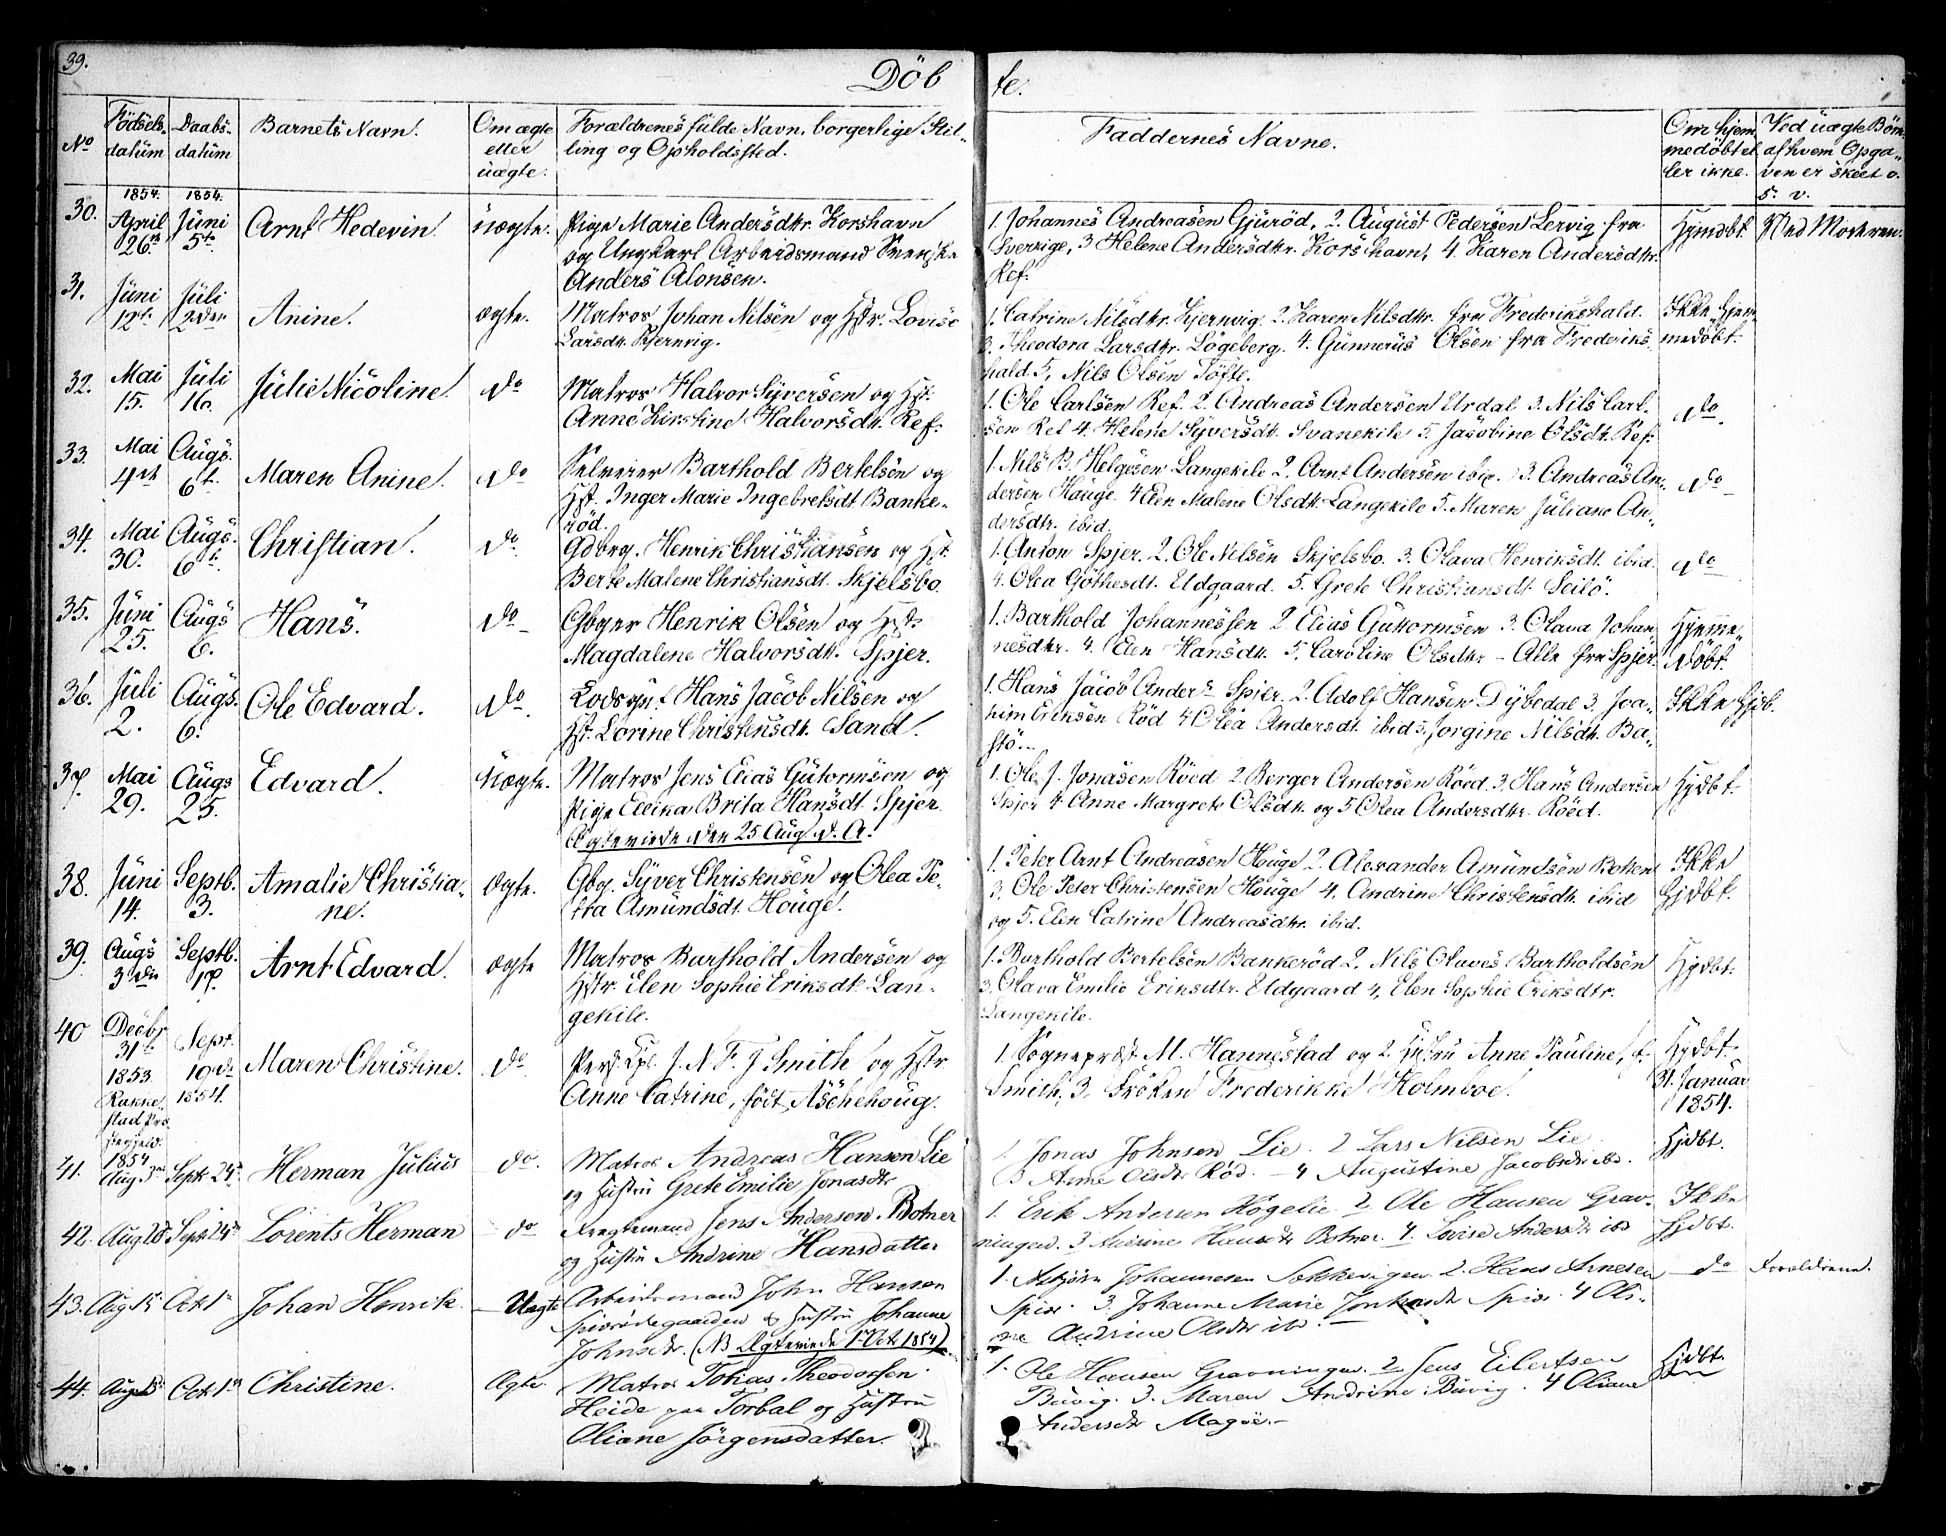 39.
Döb te.
No
Födsels-
datüm
Daabs-
datüm
Barnets Navn.
Om ægte
eller
üægte.
Forældrenes fülde Navn, borgerlige Stil-
ling og Opholdssted.
Faddernes Navne.
Om hjem
medöbt el
ler ikke.
Ved üægte Börn
af hvem Opga-
ven er skeet o.
s. v.
30.
1854.
April
26de
1854.
Jüni
5te
Arnt Hedevin
üægte.
Pige Marie Andersdtr. Korshavn
og Ungkarl Arbeidsmand Svenske
Anders Alonsen.
1. Johannes Andreasen Gjuröd, 2. August Pedersen Lervig fra
Sverrige, 3 Helene Andersdtr. Korshavn, 4. Karen Andersdtr.
Ref.
Hjmdbt.
Ved Moderen.
31.
Jüni
12te
Jüli
2den
Anine.
ægte.
Matros Johan Nilsen og Hstr. Lovise
Larsdtr. Kjernvig.
1. Catrine Nilsdtr. Kjernvig. 2. Karen Nilsdtr. fra Frederikshald.
3. Theodora Larsdtr. Lögeberg. 4. Günnerüs Olsen fra Frederiks
hald. 5, Nils Olsen Töfte.
Ikke Hjem
medöbt.
32.
Mai
15.
Jüli
16.
Jülie Nicoline
do
Matros Halvor Syversen og Hst.
Anne Kirstine Halvorsdtr. Ref.
1. Ole Carlsen Ref. 2. Andreas Andersen Urdal 3. Nils Carl-
sen Ref 4. Helene Syversdt. Svanekile 5. Jacobine Olsdt. Ref.
do
33.
Mai
4de
Augs.
6t.
Maren Anine.
do
Selveier Barthold Bertelsen og
Hst. Inger Marie Ingebretsdt Banke-
röd.
1. Nils B. Helgesen Langekile 2. Arnt Andersen ibid. 3. Andreas An-
dersen Haüge. 4 Elen Malene Olsdt. Langekile 5. Maren Jüliane An-
dersdtr. ibid.
do
34.
Mai
30.
Augs.
6te.
Christian.
do
Gdbrg. Henrik Christiansen og Hst.
Berte Malene Christiansdt. Skjelsbo.
1. Anton Spjer. 2. Ole Nilsen Skjelsbo. 3. Olava Henriksdt. ibid.
4. Olea Göthesdt. Eldgaard. 5. Grete Christiansdt Seilö.
do
35.
Jüni
25.
Augs
6.
Hans.
do
Henrik Olsen og Hst.
Magdalene Halvorsdt. Spjer.
1. Barthold Johannessen 2 Elias Güttormsen 3. Olava Johan
nesdtr. 4. Elen Hansdt. 5. Caroline Olsdtr - Alle fra Spjer.
Hjemme
döbt.
36.
Jüli
2.
Augs.
6.
Ole Edvard.
do.
Hans Jacob Nilsen og
Hst. Lorine Christensdt. Sand.
1. Hans Jacob Anders. Spjer. 2. Adolf Hansen Dybedal 3. Joa-
kim Eriksen Röd 4 Olea Andersdt. ibid 5. Jorgine Nilsdt. Ba-
stö.
Ikke Hjdb.
37.
Mai
29.
Augs
25.
Edvard.
Uægte.
Matros Jens Elias Gütormsen og
Pige Ellika Brita Hansdt Spjer.
Ægteviede den 25 Aug. d. A.
1. Ole J. Jonasen Röed 2. Berger Andersen Röed. 3. Hans Andersen
Spjer 4. Anne Margrete Olsdtr. og 5 Olea Andersdtr. Röed.
Hjdbt.
38.
Jüni
14.
Septb.
3.
Amalie Christia-
ne.
ægte.
Gbg. Syver Christensen og Olea Pe-
tra Amündsdt. Houge.
1. Peter Arnt Andreasen Houge 2. Alexander Amündsen Botten
3. Ole Peter Christensen Houge 4. Andrine Christensdt. ibid
og 5. Elen Catrine Andreasdtr. ibid.
Ikke
Hjdbt.
39.
Augs
3die
Septb.
17.
Arnt Edvard.
ægte
Matros Barthold Andersen og
Hstr. Elen Sophie Eriksdt. Lan-
gekile.
1. Barthold Bertelsen Bankeröd 2. Nils Olaves Bartholdsen
3. Olava Emilie Eriksdtr. Eldgaard 4, Elen Sophie Eriksdtr.
Langekile.
Hjdbt.
40
Decbr
31te
1853.
Rakke-
stad Præ
stegjeld.
Sept.
19de
1854.
Maren Christine.
do.
Pers. Cpl. J. N. F. J Smith og Hstr
Anne Catrine, födt Aschehoug.
1. Sognepræst M. Hannestad og 2 Hstru Anne Pauline, f.
Smith, 3, Fröken Frederikke Holmboe.
Hjdbt.
31. Januar
1854.
41.
1854
Aug 3die
Septr 24de
Herman Julius
do.
Matros Andreas Hansen Lie
og Hustru Grete Emilie Jonasdtr
1 Jonas Johnsen Lie. 2 Lars Nilsen Lie
3 Anne Olsdtr Röd. - 4 Augustine Jacobsdtr ibd.
Hjdbt.
42.
Aug 28
Septr 24de
Lorents Herman
do
Jens Andersen Botner
og Hustru Andrine Hansdatter
1. Erik Andersen Högelie 2 Ole Hansen Grav-
ningen. 3 Andrine Hansdtr Botner. 4. Lovise Andersdtr ibd
Ikke
Hjdbt.
43.
Aug 15
Oct 1te
Johan Henrik.
Uægte
Arbeidsmand John Hansen
Spierödegaarden og Hustru Johanne
Johnsdtr. (NB Ægteviede 1 Oct 1854)
1. Asbjörn Johannesen Sokkevigen 2. Hans Arnesen
Spier. 3. Johanne Marie Spier. 4 Oli-
ne Andrine Olsdtr ibd.
do
Forældrene.
44.
Oct. 1te
Christine.
Ægte.
Matros Tobias Theodorsen
Heide paa Torbal og Hustru
Oliane Jörgensdatter.
1. Ole Hansen Gravningen. 2 Jens Eilertsen
Büvig. 3. Maren Andrine Büvig. 4 Oliane
Andersdtr Magöe.
Hjdbt.